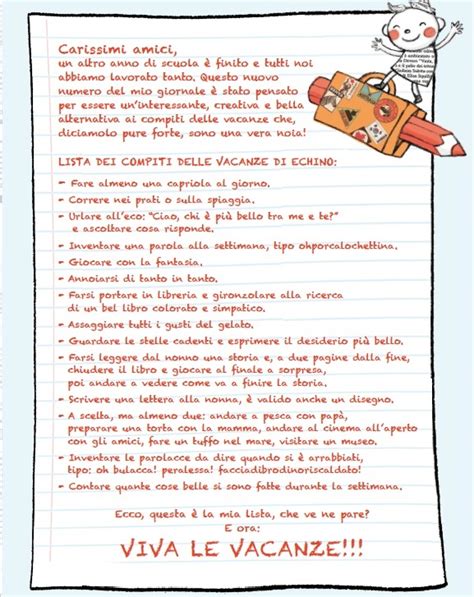 Carissimi amici,
un altro anno di scuola è finito e tutti noi
abbiamo lavorato tanto. Questo nuovo
numero del mio giornale è stato pensato
per essere un'interessante, creativa e bella
alternativa ai compiti delle vacanze che,
diciamolo pure forte, sono una vera noia!
LISTA DEI COMPITI DELLE VACANZE DI ECHINO:
- Fare almeno una capriola al giorno.
- Correre nei prati o sulla spiaggia.
- Urlare all'eco: "Ciao, chi è più bello tra me e te?"
e ascoltare cosa risponde.
- Inventare una parola alla settimana, tipo ohporcalochettina.
- Giocare con la fantasia.
- Annoiarsi di tanto in tanto.
- Farsi portare in libreria e gironzolare alla ricerca
di un bel libro colorato e simpatico.
- Assaggiare tutti i gusti del gelato.
- Guardare le stelle cadenti e esprimere il desiderio più bello.
- Farsi leggere dal nonno una storia e, a due pagine dalla fine,
chiudere il libro e giocare al finale a sorpresa,
poi andare a vedere come va a finire la storia.
- Scrivere una lettera alla nonna, è valido anche un disegno.
- A scelta, ma almeno due: andare a pesca con papà,
preparare una torta con la mamma, andare al cinema all'aperto
con gli amici, fare un tuffo nel mare, visitare un museo.
- Inventare le parolacce da dire quando si è arrabbiati,
tipo: oh bulacca! peralessa! facciadibrodinoriscaldato!
- Contare quante cose belle si sono fatte durante la settimana.
Ecco, questa è la mia lista, che ve ne pare?
E ora:
VIVA LE VACANZE!!!